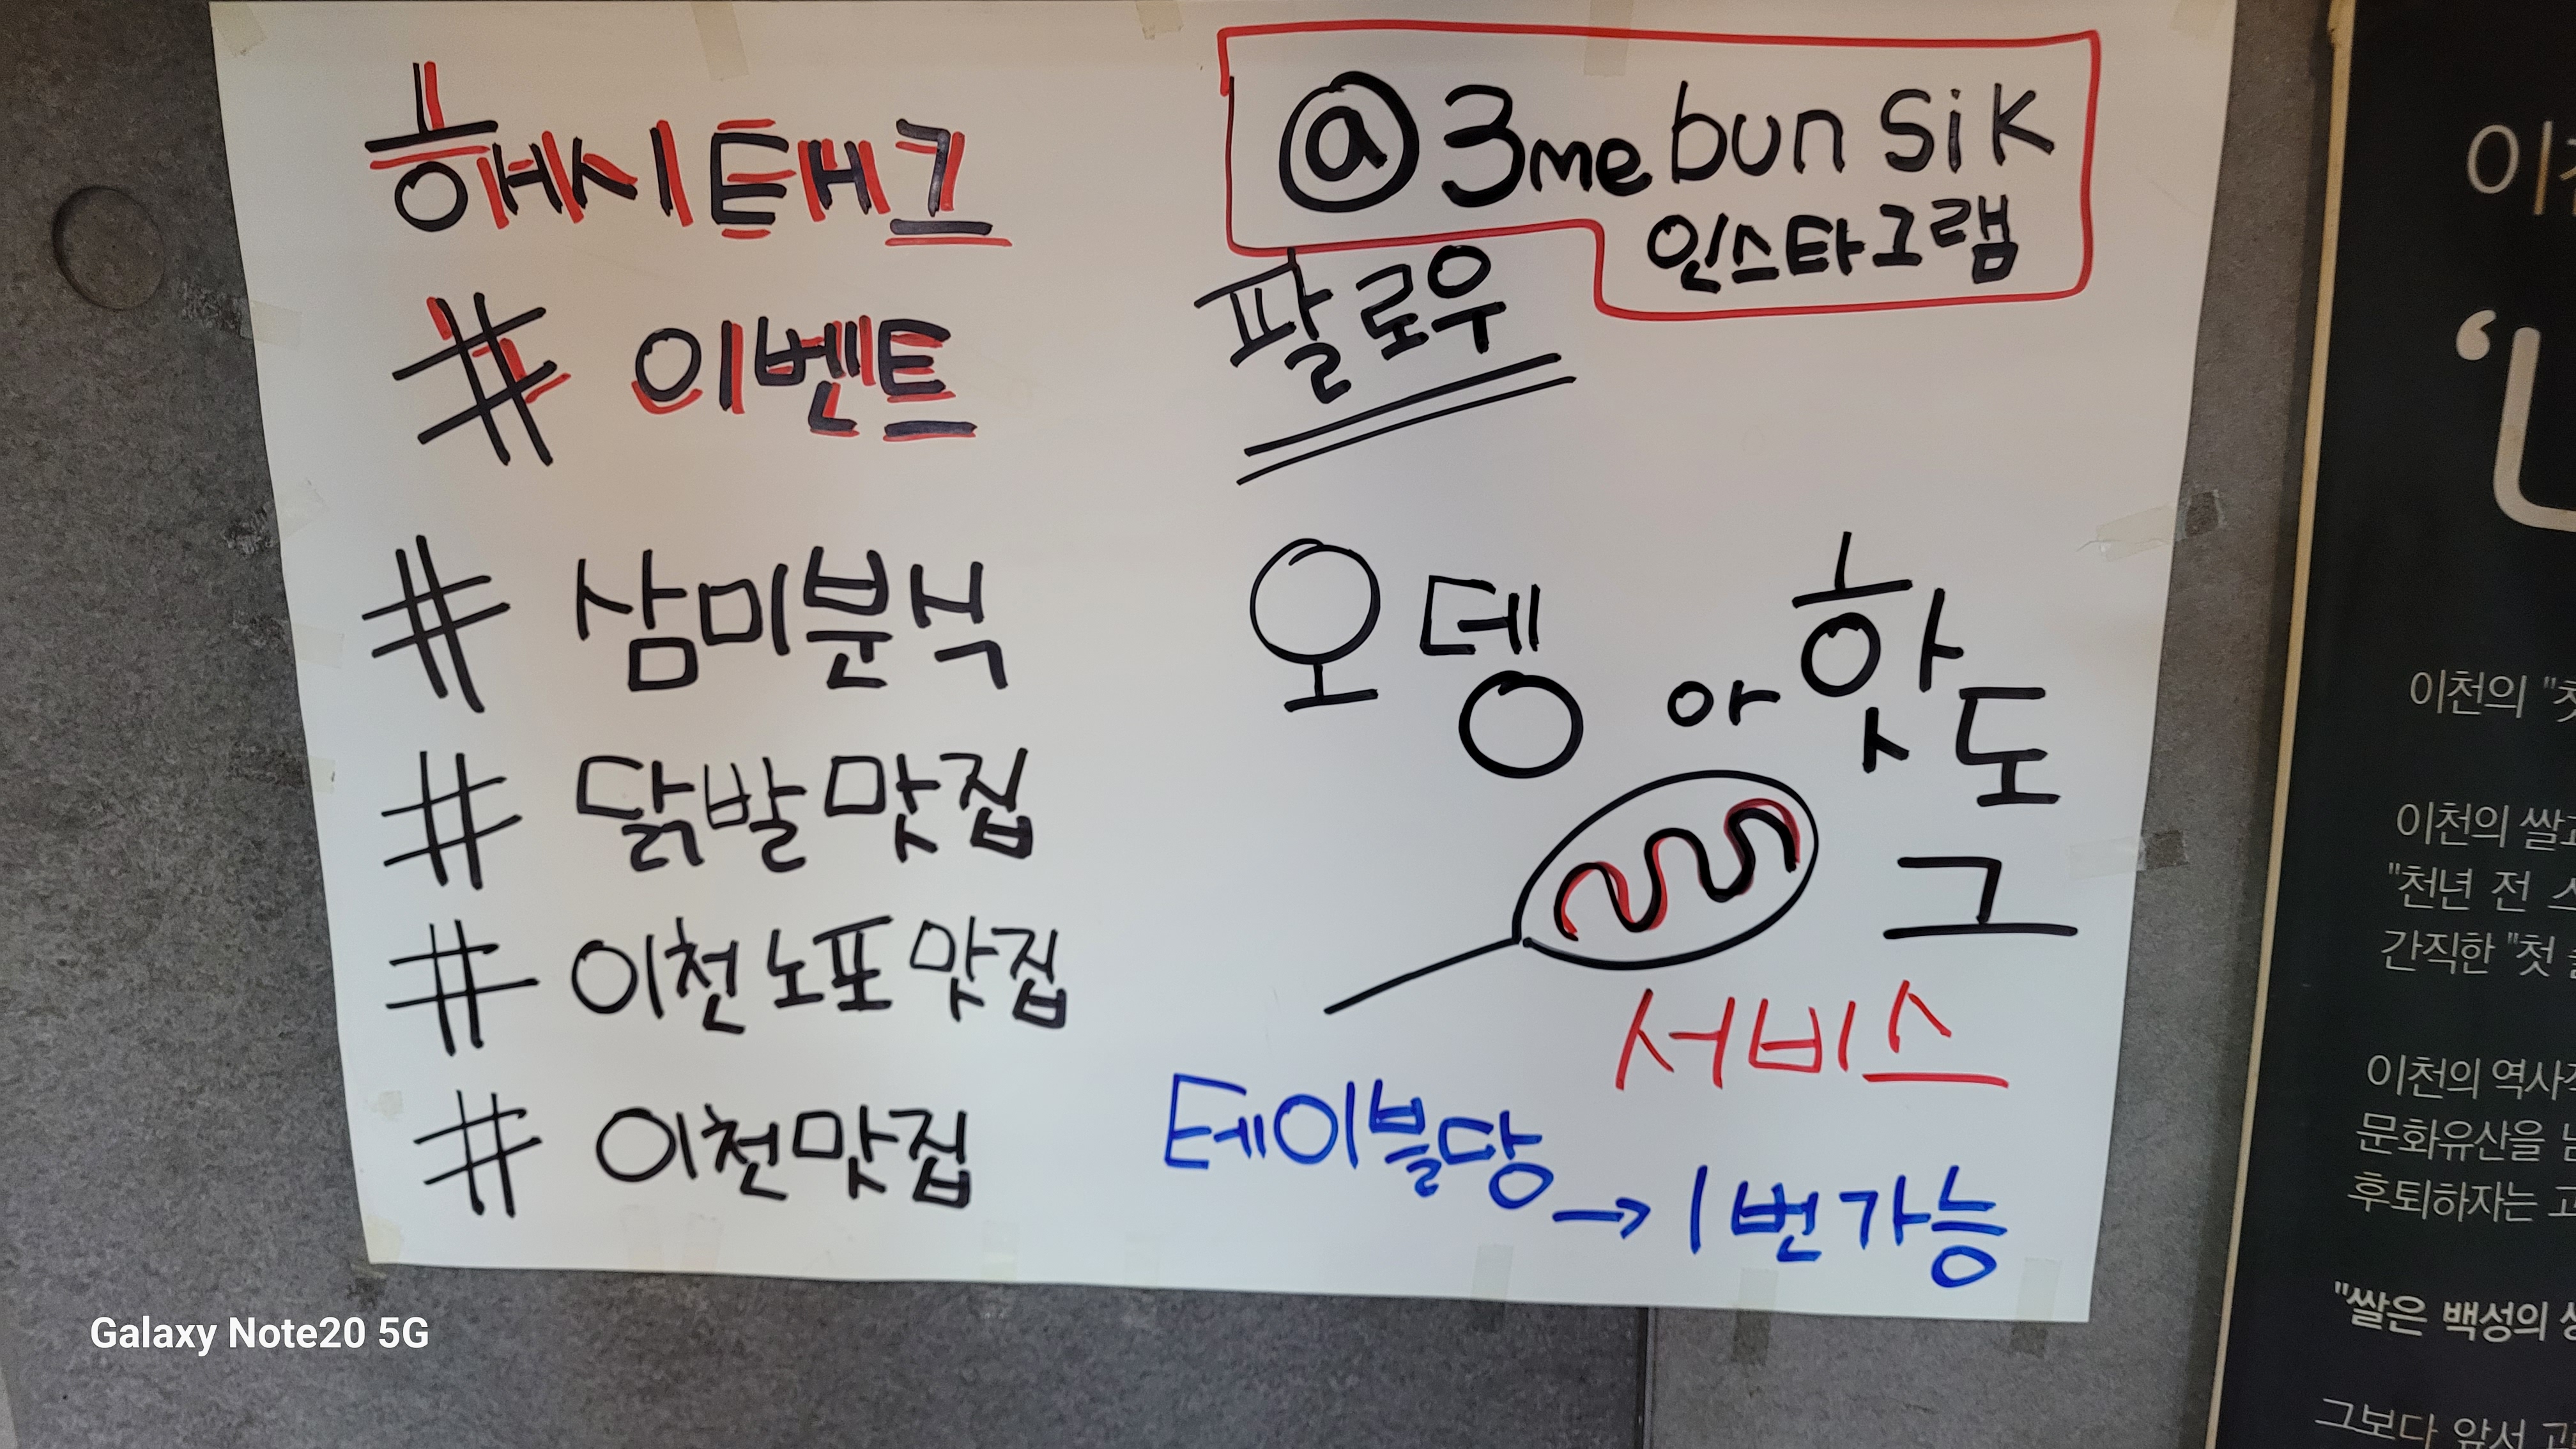 해시태그
# 이벤트
# 삼미분식
# 닭발맛집
# 이천노포맛집
# 이천맛집
@3mebunsik
인스타그램
팔로우
오뎅 or 핫도그
서비스
테이블당
→ 1번가능
Galaxy Note20 5G
이천의
이천의
"천년 전
간직한 "첫
이천의
문화유산을
후퇴하자는
"쌀은 백성의
그보다 앞서